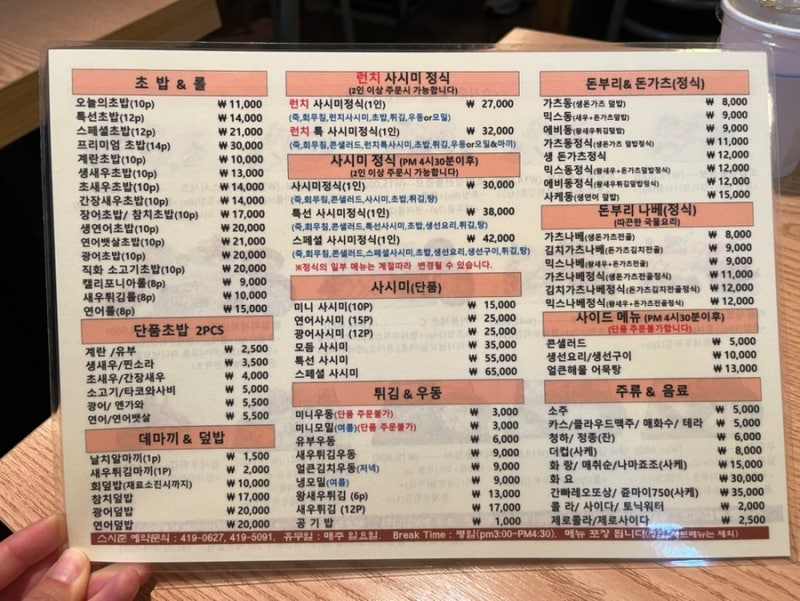 초 밥 & 롤
오늘의초밥(10p) ₩ 11,000
특선초밥(12p) ₩ 14,000
스페셜초밥(12p) ₩ 21,000
프리미엄 초밥(14p) ₩ 30,000
계란초밥(10p) ₩ 10,000
생새우초밥(10p) ₩ 13,000
초새우초밥(10p) ₩ 14,000
간장새우초밥(10p) ₩ 14,000
장어초밥/ 참치초밥(10p) ₩ 17,000
생연어초밥(10p) ₩ 20,000
연어뱃살초밥(10p) ₩ 21,000
광어초밥(10p) ₩ 20,000
직화 소고기초밥(10p) ₩ 20,000
캘리포니아롤(8p) ₩ 9,000
새우튀김롤(8p) ₩ 10,000
연어롤(8p) ₩ 15,000
단품초밥 2PCS
계란 /유부 ₩ 2,500
생새우/찐소라 ₩ 3,500
초새우/간장새우 ₩ 4,000
소고기/타코와사비 ₩ 5,000
광어/ 엔가와 ₩ 5,500
연어/연어뱃살 ₩ 5,500
데마끼 & 덮밥
날치알마끼(1p) ₩ 1,500
새우튀김마끼(1P) ₩ 2,000
회덮밥(재료소진시까지) ₩ 10,000
참치덮밥 ₩ 17,000
광어덮밥 ₩ 20,000
연어덮밥 ₩ 20,000
런치 사시미 정식
(2인 이상 주문시 가능합니다)
런치 사시미정식(1인) ₩ 27,000
(죽,회무침,런치사시미,초밥,튀김,우동or모밀)
런치 특 사시미정식(1인) ₩ 32,000
(죽,회무침,콘샐러드,런치특사시미,초밥,튀김,우동or모밀&마끼)
사시미 정식 (PM 4시30분이후)
(2인 이상 주문시 가능합니다)
사시미정식(1인) ₩ 30,000
(죽,회무침,콘샐러드,사시미,초밥,튀김,탕)
특선 사시미정식(1인) ₩ 38,000
(죽,회무침,콘샐러드,특선사시미,초밥,생선요리,튀김,탕)
스페셜 사시미정식(1인) ₩ 42,000
(죽,회무침,콘샐러드,스페셜사시미,초밥,생선요리,생선구이,튀김,탕)
※정식의 일부 메뉴는 계절따라 변경될 수 있습니다.
사시미(단품)
미니 사시미(10P) ₩ 15,000
연어사시미 (15P) ₩ 25,000
광어사시미 (12P) ₩ 25,000
모듬 사시미 ₩ 35,000
특선 사시미 ₩ 55,000
스페셜 사시미 ₩ 65,000
튀김 & 우동
미니우동(단품 주문불가) ₩ 3,000
미니모밀(여름)(단품 주문불가) ₩ 3,000
유부우동 ₩ 6,000
새우튀김우동 ₩ 9,000
얼큰김치우동(저녁) ₩ 9,000
냉모밀(여름) ₩ 9,000
왕새우튀김 (6p) ₩ 13,000
새우튀김 (12P) ₩ 17,000
공 기 밥 ₩ 1,000
돈부리& 돈가츠(정식)
가츠동(생돈가츠 덮밥) ₩ 8,000
믹스동(새우+돈가츠 덮밥) ₩ 9,000
에비동(왕새우튀김덮밥) ₩ 9,000
가츠동정식(생돈가츠덮밥정식) ₩ 11,000
생 돈가츠정식 ₩ 12,000
믹스동정식(왕새우+돈가츠덮밥정식) ₩ 12,000
에비동정식(왕새우튀김덮밥정식) ₩ 12,000
사케동(생연어 덮밥) ₩ 15,000
돈부리 나베(정식)
(따끈한 국물요리)
가츠나베(생돈가츠전골) ₩ 8,000
김치가츠나베(돈가츠김치전골) ₩ 9,000
믹스나베(왕새우+돈가츠전골) ₩ 9,000
가츠나베정식(생돈가츠전골정식) ₩ 11,000
김치가츠나베정식(돈가츠김치전골정식) ₩ 12,000
믹스나베정식(왕새우+돈가츠전골정식) ₩ 12,000
사이드 메뉴 (PM 4시30분이후)
(단품 주문불가합니다)
콘샐러드 ₩ 5,000
생선요리/생선구이 ₩ 10,000
얼큰해물 어묵탕 ₩ 13,000
주류 & 음료
소주 ₩ 5,000
카스/클라우드맥주/ 매화수/ 테라 ₩ 5,000
청하/ 정종(잔) ₩ 6,000
더컵(사케) ₩ 8,000
화 랑/ 매취순/나마죠조(사케) ₩ 15,000
화 요 ₩ 30,000
간빠레오또상/ 쥰마이750(사케) ₩ 35,000
콜 라/ 사이다/ 토닉워터 ₩ 2,000
제로콜라/제로사이다 ₩ 2,500
스시준 예약문의 : 419-0627, 419-5091. 휴무일 : 매주 일요일. Break Time : 평일(pm3:00~PM4:30). 메뉴 포장 됩니다 세트메뉴는 제외)